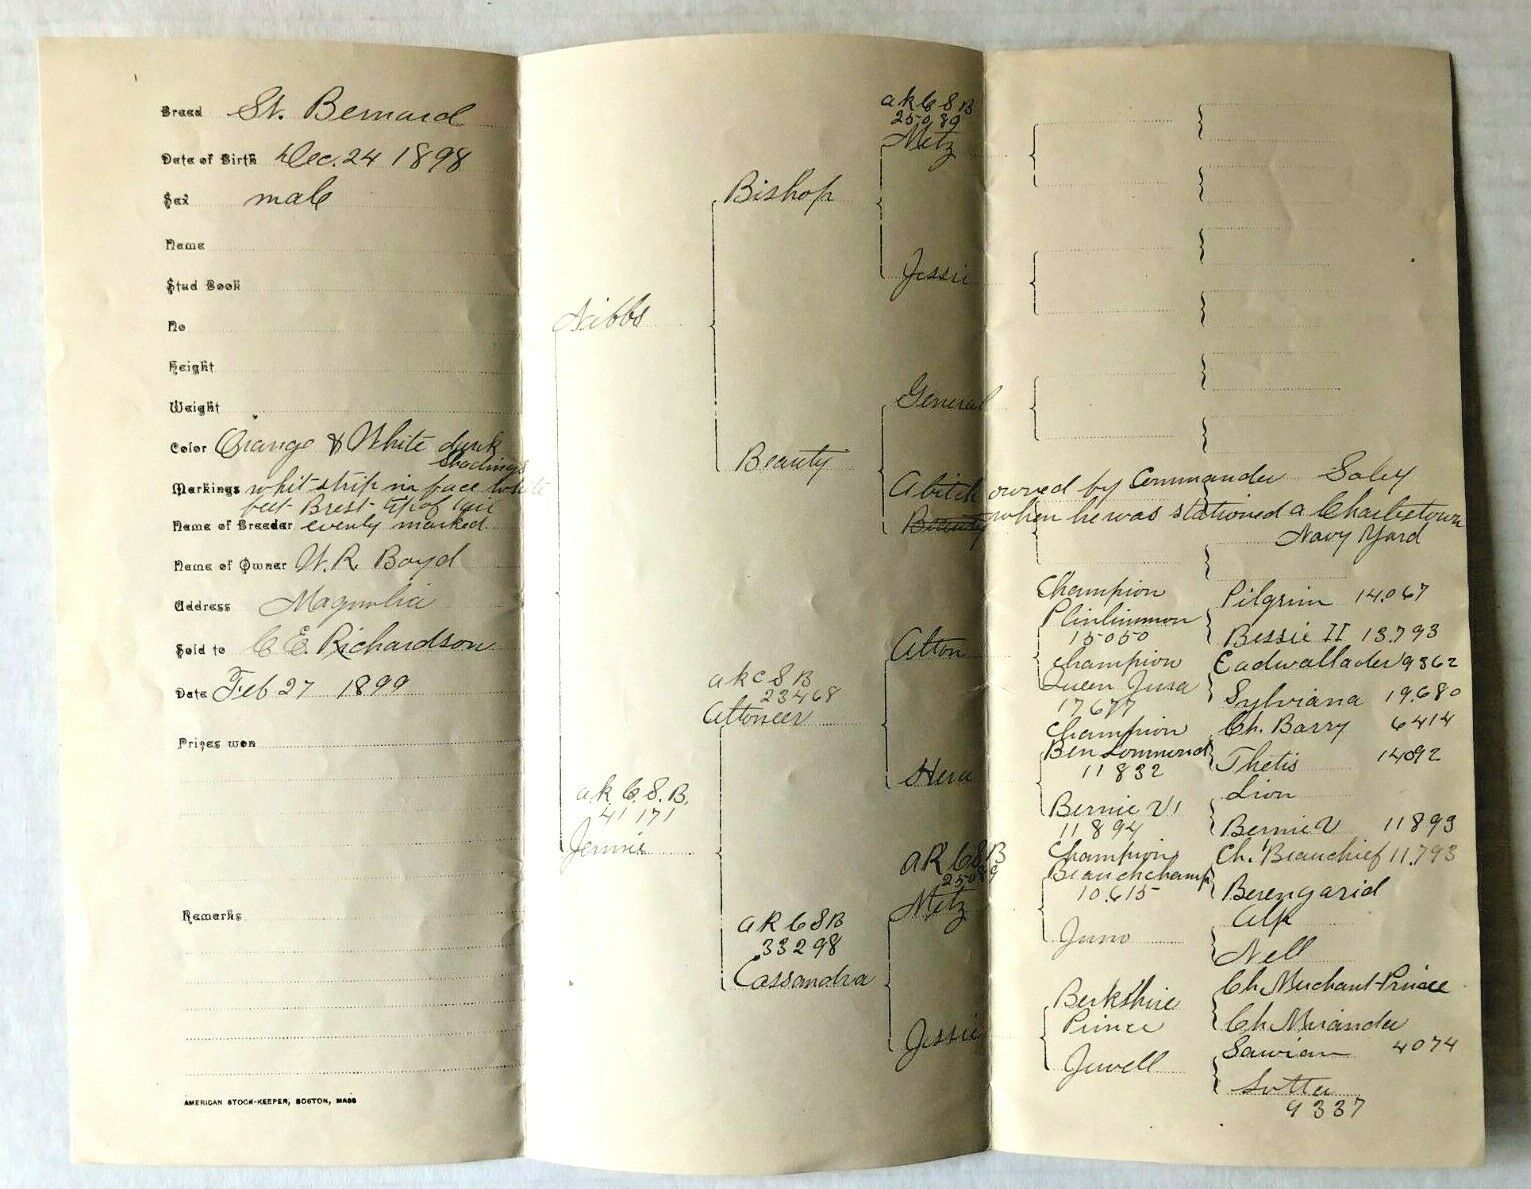 Breed St. Bernard
Date of Birth Dec. 24 1898
Sex male
Name
Stud Book
No
Height
Weight
Color Orange & White dark
shadings
Markings whit strip in face white
feet Brest tip of tail
Name of Breeder evenly marked
Name of Owner W. R. Boyd
Address Magnolia
Sold to C. E. Richardson
Date Feb 27 1899
Prizes won
Remarks
AMERICAN STOCK-KEEPER, BOSTON, MASS
Nibbs
a. k. C. S. B.
41171
Jennie
Bishop
Beauty
a k c S B
23468
Altoneer
a k C S B
33298
Cassandra
a k C S B
25089
Metz
Jessie
General
A bitch owned by Commander
Beauty when he was stationed a Charlestown
Navy Yard
Alton
Hera
a k C S B
25089
Metz
Jessie
Champion
Plinlimmon
15050
Champion
Queen Jura
17677
Champion
Ben Lommond
11832
Bernie VI
11894
Champion
Beauchchamp
10.615
Juno
Berkshire
Prince
Jewell
Pilgrim 14.067
Bessie II 13.793
Cadwallader 9362
Sylviana 19.680
Ch. Barry 6414
Thetis 14092
Lion
Bernie V 11893
Ch. Beauchief 11.793
Berengarid
Alp
Nell
Ch Merchant Prince
Ch Mirander
4074
9337